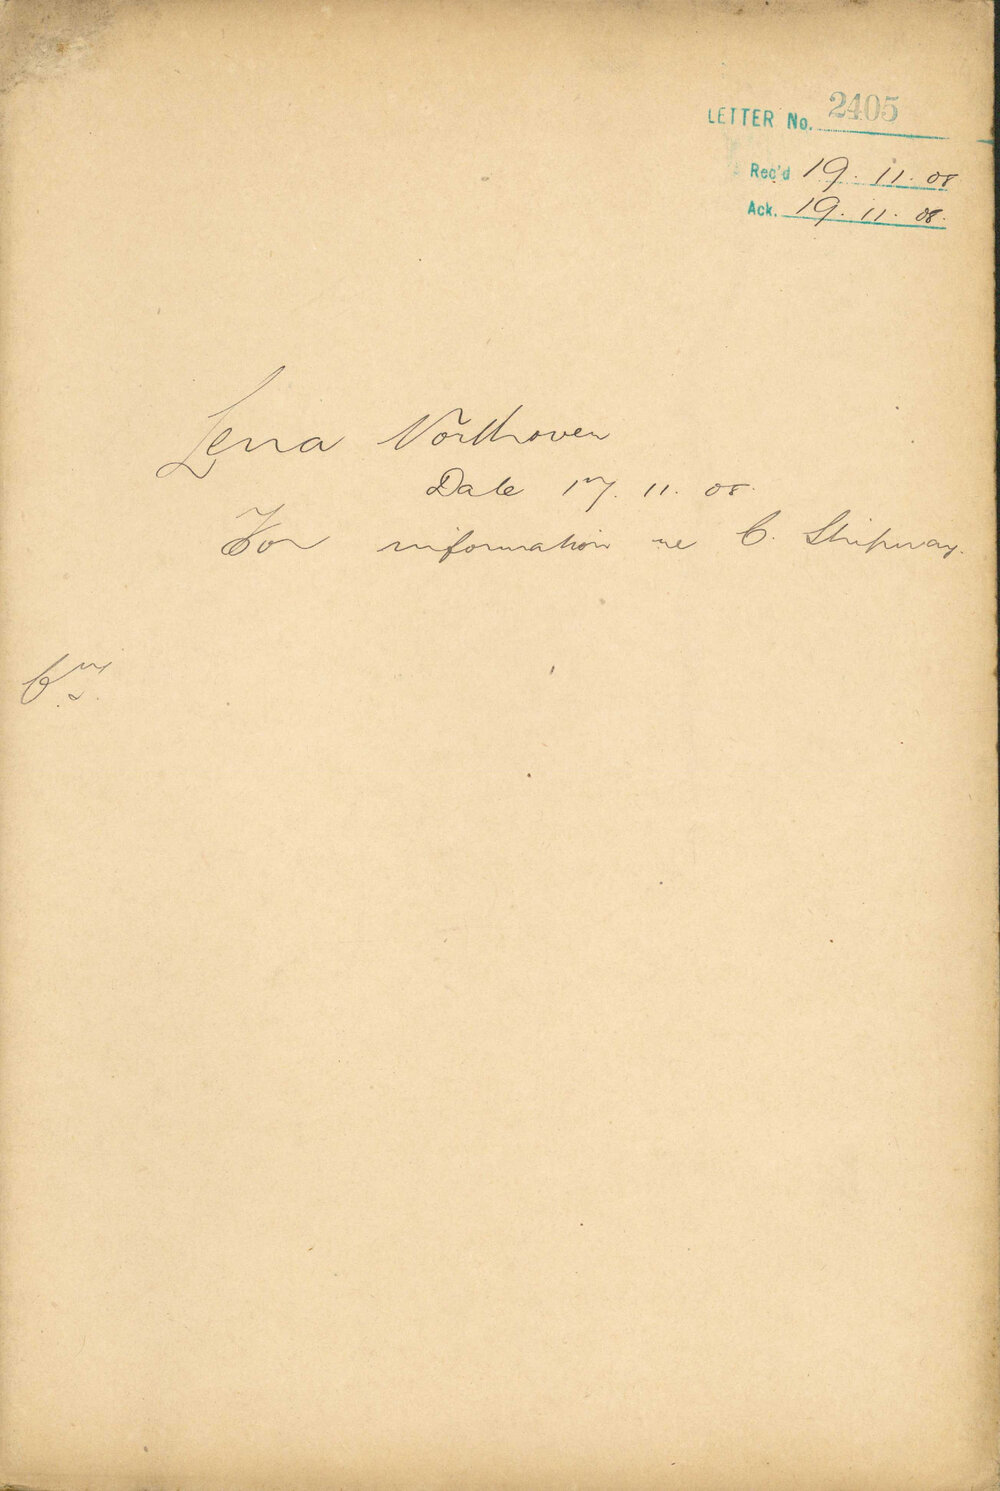 LETTER No. 2405
Rec'd 19. 11. 08
Ack. 19. 11. 08.
Lena Northoven
Date 17. 11. 08.
For information re C. Shipway.